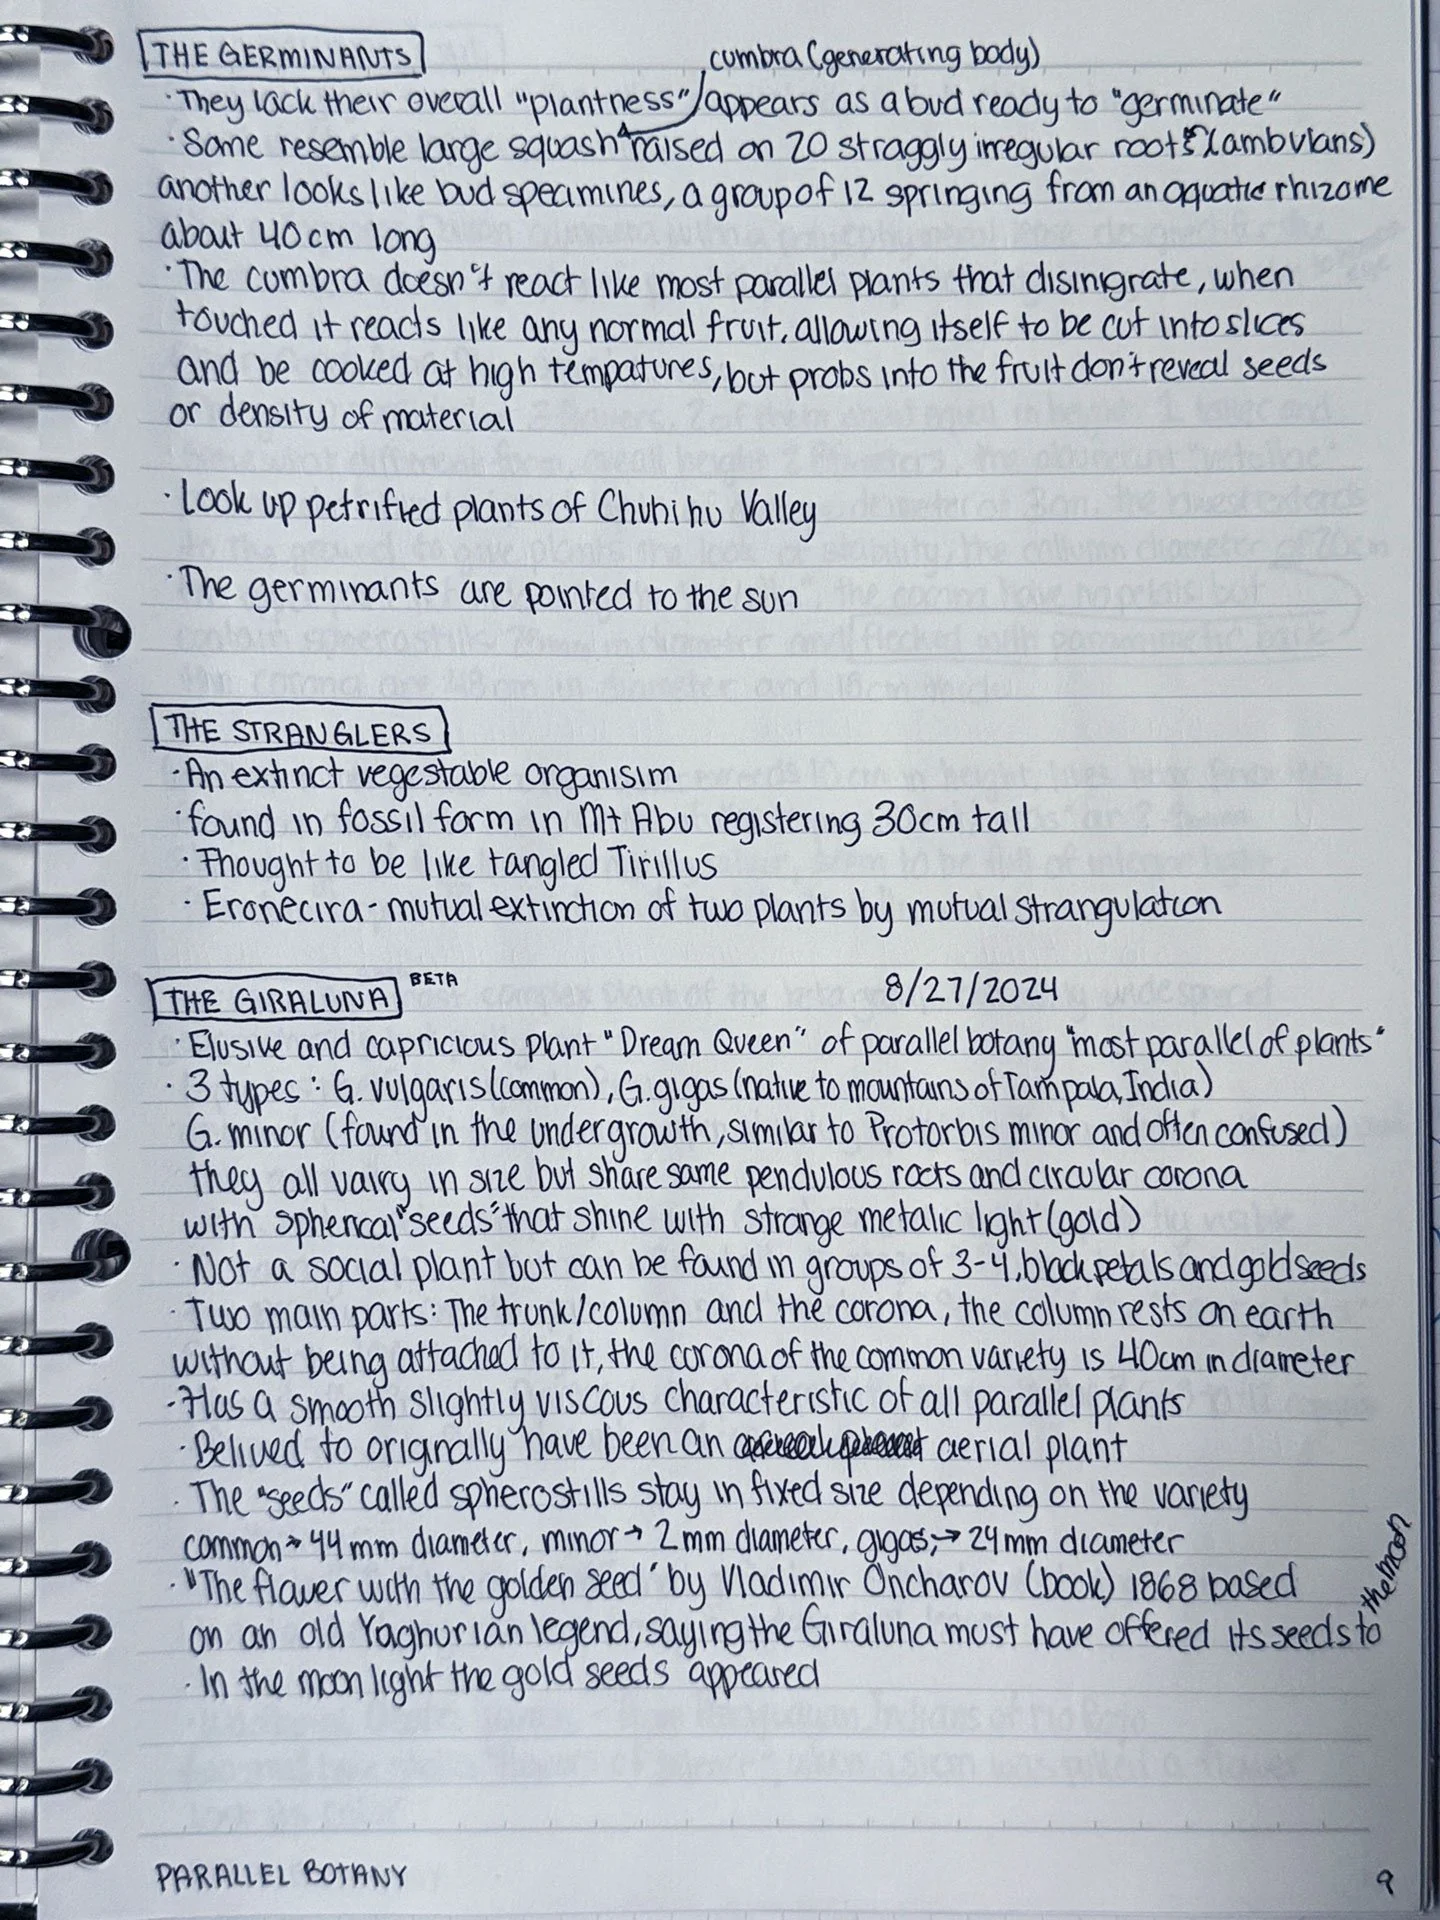 THE GERMINANTS
cumbra (generating body)
· They lack their overall "plantness" / appears as a bud ready to "germinate"
· Some resemble large squash raised on 20 straggly irregular roots (ambulans)
another looks like bud specimines, a group of 12 springing from an aquatic rhizome
about 40cm long
· The cumbra doesn't react like most parallel plants that disinigrate, when
touched it reacts like any normal fruit, allowing itself to be cut into slices
and be cooked at high tempatures, but probs into the fruit don't reveal seeds
or density of material
· Look up petrified plants of Chuhihu Valley
· The germinants are pointed to the sun
THE STRANGLERS
· An extinct vegestable organisim
· found in fossil form in Mt Abu registering 30cm tall
· Thought to be like tangled Tirillus
· Eronecira - mutual extinction of two plants by mutual strangulation
THE GIRALUNA BETA 8/27/2024
· Elusive and capricious plant "Dream Queen" of parallel botany "most parallel of plants"
· 3 types: G. vulgaris (common), G. gigas (native to mountains of Tampala, India)
G. minor (found in the undergrowth, similar to Protorbis minor and often confused)
they all vairy in size but share same pendulous roots and circular corona
with spherical "seeds" that shine with strange metalic light (gold)
· Not a social plant but can be found in groups of 3-4, black petals and gold seeds
· Two main parts: The trunk/column and the corona, the column rests on earth
without being attached to it, the corona of the common variety is 40cm in diameter
· Has a smooth slightly viscous characteristic of all parallel plants
· Belived to originally have been an aerial plant
· The "seeds" called spherostills stay in fixed size depending on the variety
common → 44 mm diameter, minor → 2 mm diameter, gigas, → 24 mm diameter
· "The flower with the golden seed" by Vladimir Oncharov (book) 1868 based
on an old Yaghurian legend, saying the Giraluna must have offered its seeds to the moon
· In the moon light the gold seeds appeared
PARALLEL BOTANY
9